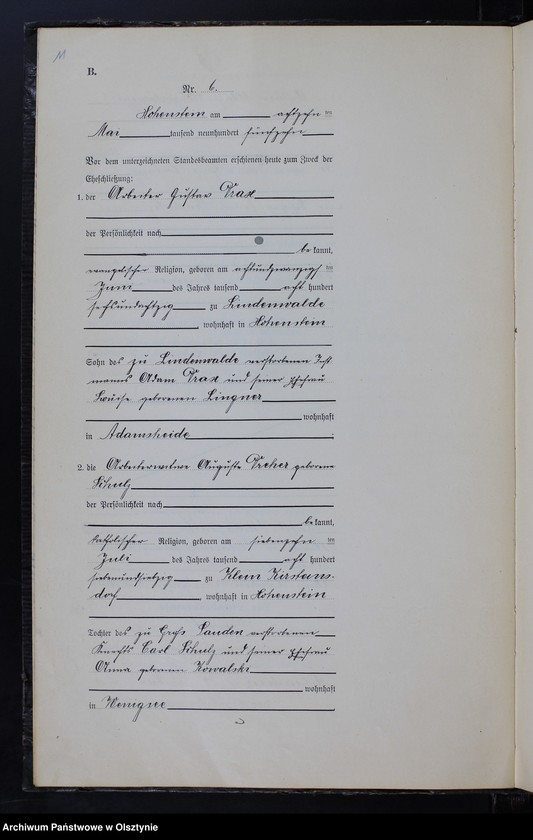 B.
Nr. 6.
Hohenstein am achtzehn ten
Mai tausend neunhundert fünfzehn
Vor dem unterzeichneten Standesbeamten erschienen heute zum Zweck der
Eheschließung:
1. der Arbeiter Gustav
der Persönlichkeit nach
bekannt,
evangelischer Religion, geboren am achtundzwanzigs ten
Juni des Jahres tausend acht hundert
sechsundachtzig zu Lindenwalde
, wohnhaft in Hohenstein
Sohn des zu Lindenwalde verstorbenen Inst
manns Adam und seiner Ehefrau
Louise geborenen Lingner
wohnhaft
in Adamsheide
2. die Arbeiterwitwe Auguste Dreher geborene
Schulz
der Persönlichkeit nach
bekannt,
katholischer Religion, geboren am siebenzehn ten
Juli des Jahres tausend acht hundert
siebenundsiebzig zu Klein Kirsteins-
dorf, wohnhaft in Hohenstein
Tochter des zu Groß Lauden verstorbenen
Knechts Carl Schulz und seiner Ehefrau
Anna geborenen Kowalski
wohnhaft
in Wemgsee
Archiwum Państwowe w Olsztynie